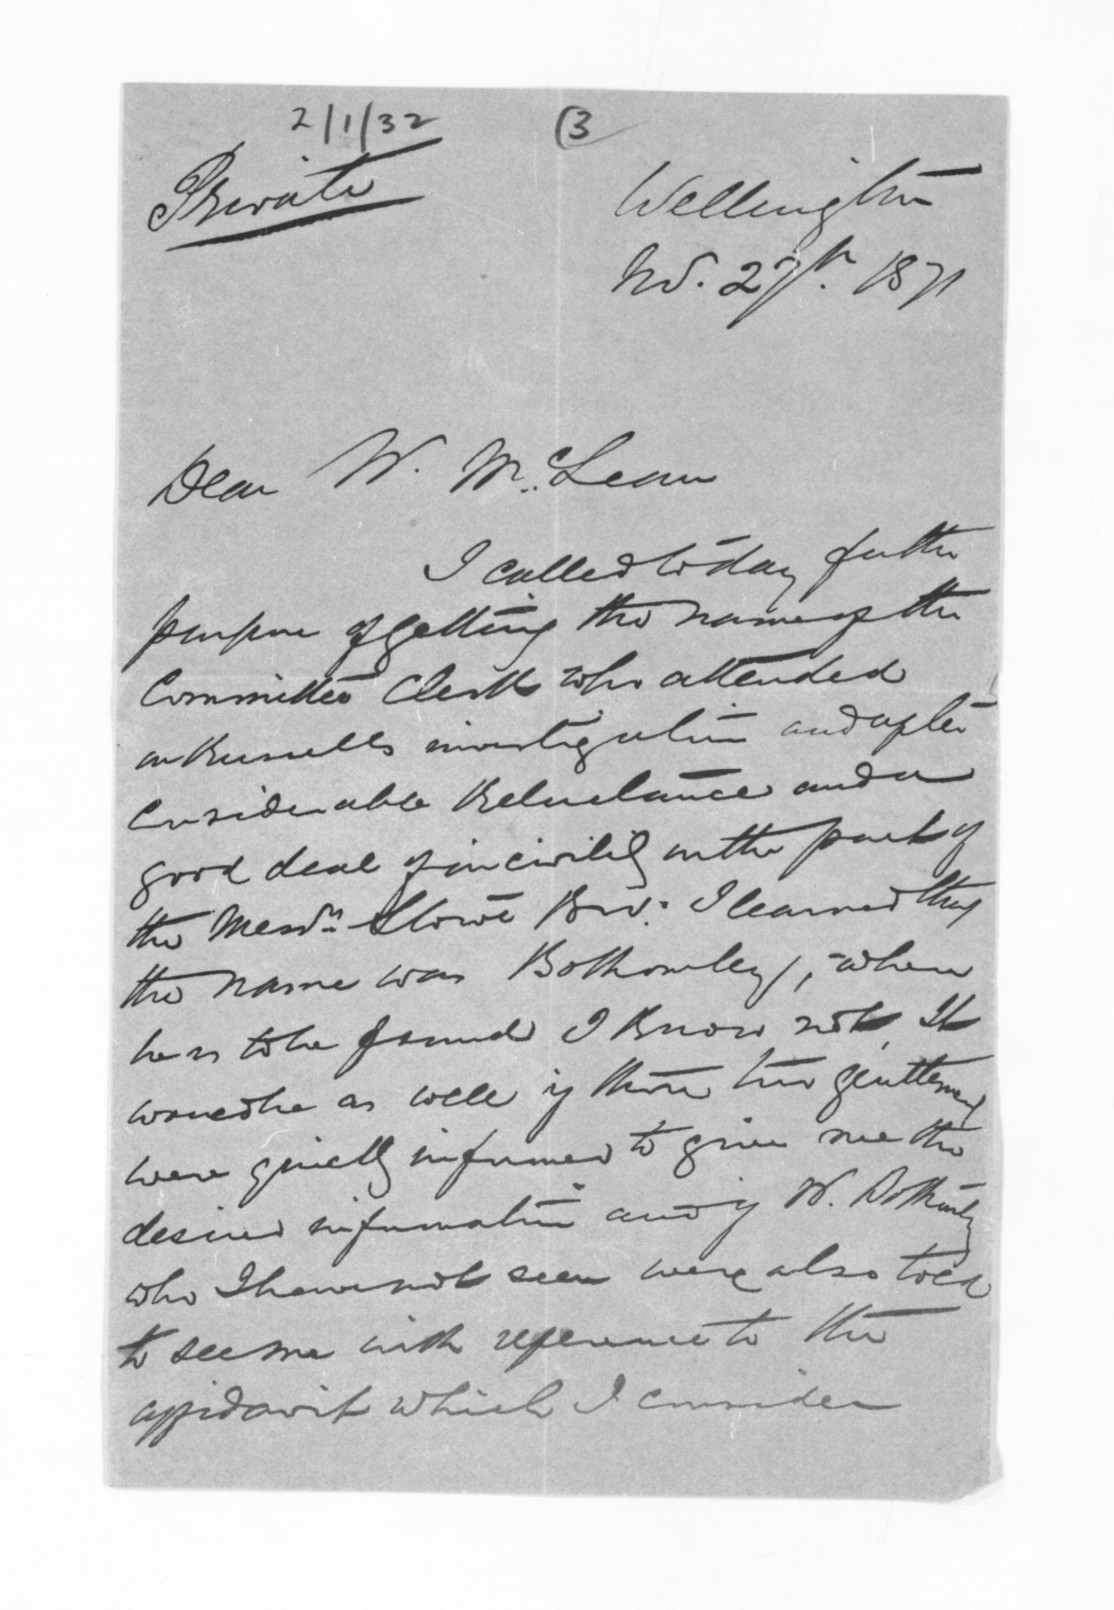 2/1/32 (3
Private
Wellington
Nov. 27th. 1871
Dear Mr. McLean
I called to day for the
purpose of getting the name of the
Committee Clerk who attended
on Russells investigation and after
Considerable Reluctance and a
good deal of incivility on the part of
the Messrs Stowe Bro: I learned that
the name was Bothomley, - where
he is to be found I know not, It
would be as well if these two gentlemen
were quietly informed to give me the
desired information and if Mr. Bothomley
who I have not seen were also told
to see me with reference to the
affidavit which I consider